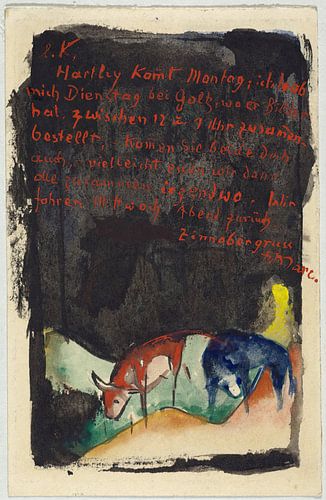 L. K,
Hartley komt Montag; ich hab
mich Dienstag bei Goltz, wo er Bilder
hat. zwischen 12 u 1 Uhr zusamen-
bestellt, Komen Sie beide doch
auch, vielleicht essen wir dann
alle zusammen irgendwo. Wir
fahren Mittwoch Abend zurück
Zinnobergruss
FMarc.